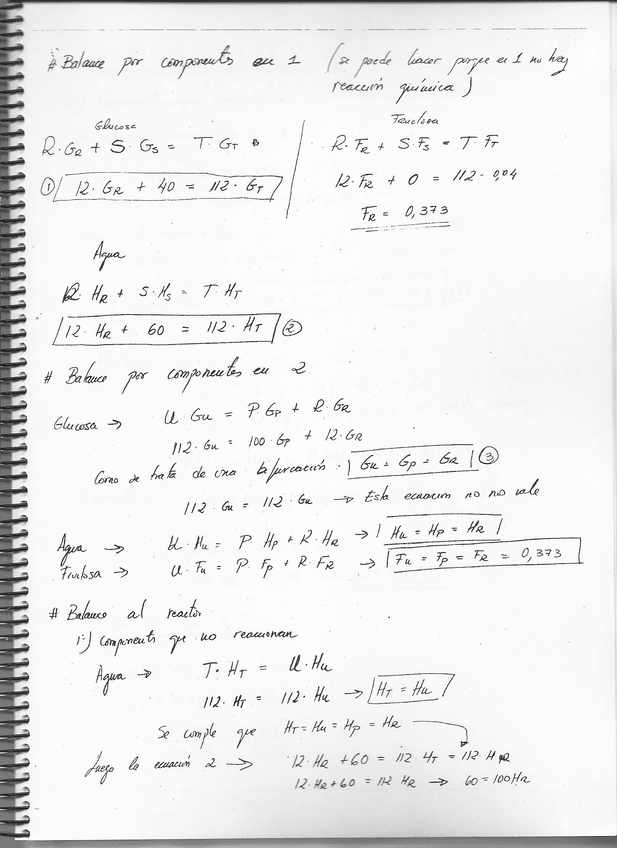 # Balance por components en 1 (se puede hacer porque en 1 no hay
reacción química)
Glucosa
R·GR + S·GS = T·GT
① 12·GR + 40 = 112·GT
Fructosa
R·FR + S·FS = T·FT
12·FR + 0 = 112·0,04
FR = 0,373
Agua
R·HR + S·HS = T·HT
12·HR + 60 = 112·HT ②
# Balance por componentes en 2
Glucosa → U·Gu = P·GP + R·GR
112·Gu = 100·GP + 12·GR
Como se trata de una bifurcación. Gu = GP = GR ③
112·Gu = 112·Gu → Esta ecuación no no vale
Agua → U·Hu = P·HP + R·HR → Hu = HP = HR
Fructosa → U·Fu = P·FP + R·FR → Fu = FP = FR = 0,373
# Balance al reactor
1º) components que no reaccionan
Agua → T·HT = U·Hu
112·HT = 112·Hu → HT = Hu
Se cumple que HT = Hu = HP = HR
luego la ecuación 2 → 12·HR + 60 = 112 HT = 112·HR
12·HR + 60 = 112 HR → 60 = 100HR